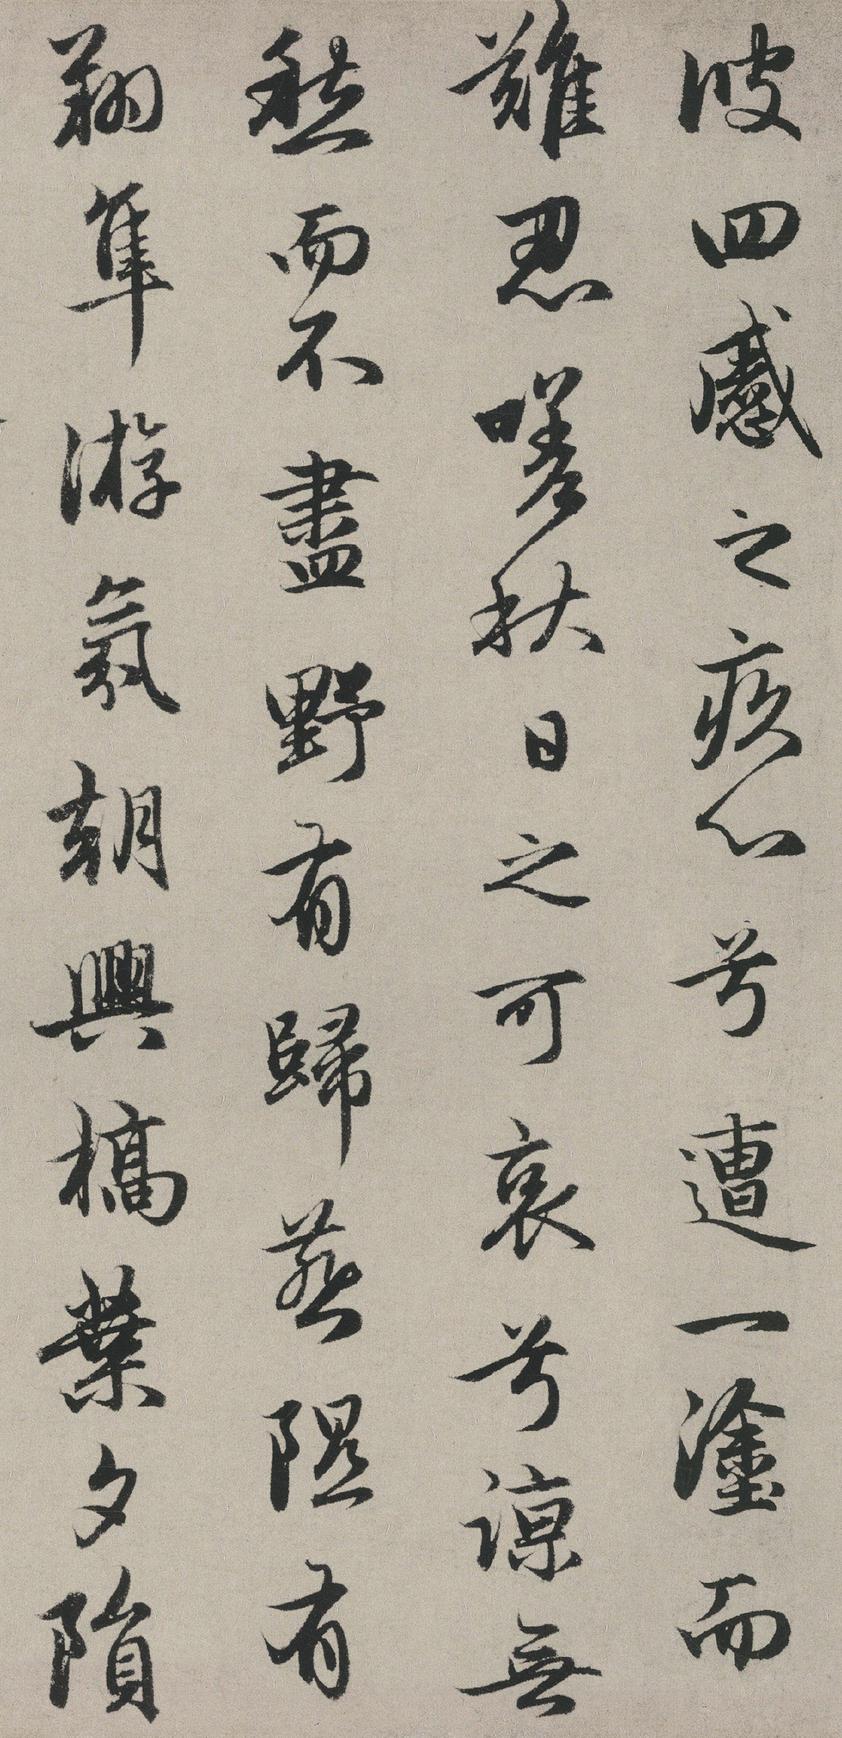 彼四慼之疚心兮遭一塗而
難忍嗟秋日之可哀兮諒無
愁而不盡野有歸燕隰有
翔隼游氛朝興槁葉夕隕